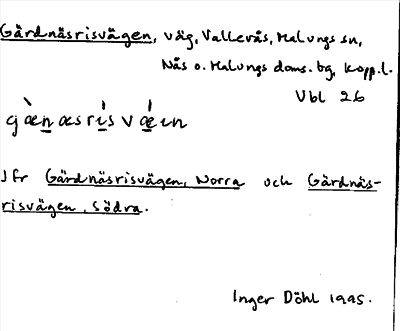 Gärdnäsrisvägen, väg, Vallerås, Malungs sn,
Nås o. Malungs doms. bg, Kopp.l.
Vbl 26
gæ̀næsrísvǽın
Jfr Gärdnäsrisvägen, Norra och Gärdnäs-
risvägen, Södra.
Inger Döhl 1995.